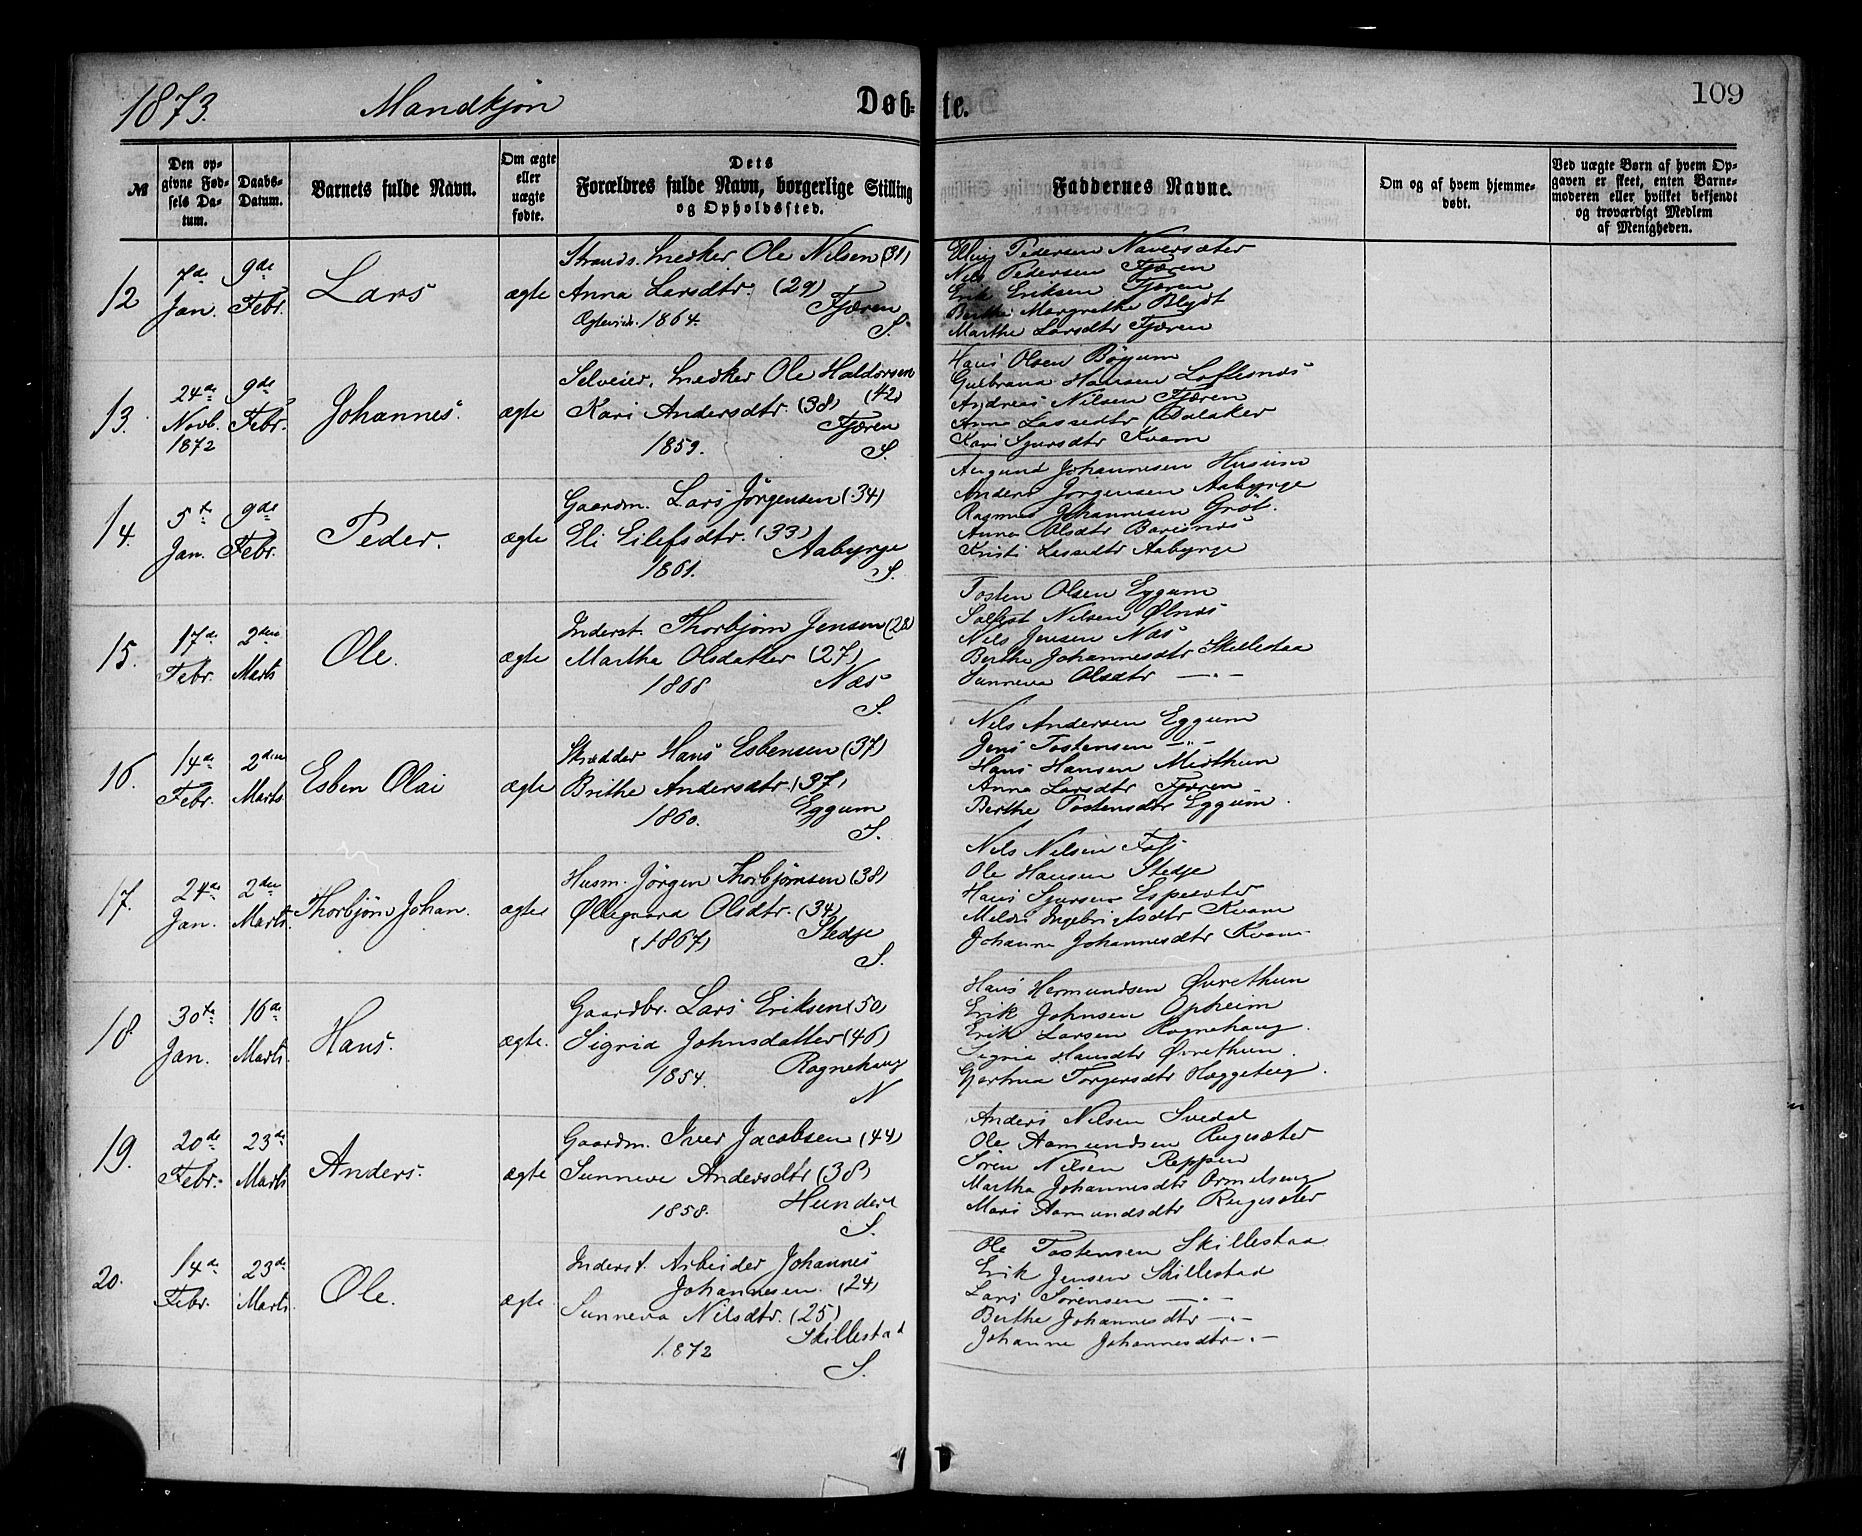 1873. Mandkjøn Døbte. 109
№
Den opgivne Fødsels Datum.
Daabs-Datum.
Barnets fulde Navn.
Om ægte eller uægte fødte.
Dets Forældres fulde Navn, borgerlige Stilling og Opholdssted.
Faddernes Navne.
Om og af hvem hjemmedøbt.
Ved uægte Børn af hvem Opgaven er skeet, enten Barnemoderen eller hvilket bekjendt og troværdigt Medlem af Menigheden.
12 7de Jan. 9de Febr. Lars ægte
Strands. Snedker Ole Nilsen (31)
Anna Larsdtr. (29) Fjæren
Ægtevied. 1864. S.
Elling Pedersen Naversæter
Nils Pedersen Fjæren
Erik Eriksen Fjæren
Berthe Margrethe Blydt
Marthe Larsdtr Fjæren
13. 24de Novb. 1872 9de Febr. Johannes. ægte
Selveier, Snedker Ole Haldorsen (42)
Kari Andersdtr. (38) Fjæren
1859. S.
Hans Olsen Bøyum
Gulbrand Hansen Loftesnæs
Andreas Nilsen Fjæren
Anna Lassedtr Dalaker
Kari Sjursdtr Kvam
14. 5te Jan. 9de Febr. Peder. ægte
Gaardm. Lars Jørgensen (34)
Eli Eilefsdtr. (33) Aabyrge
1861. S.
Aagund Johannesen Husum
Anders Jørgensen Aabyrge
Rasmus Johannesen Grøt.
Anna Olsdtr Barsnæs
Kristi Lassedtr Aabyrge
15. 17de Febr. 2den Marts Ole. ægte
Inderst. Thorbjørn Jensen (28)
Martha Olsdatter (27)
1868 Næs
S.
Tosten Olsen Eggum
Solfest Nilsen Ølnæs
Nils Jensen Næs
Berthe Johannesdtr Skillestaa
Sunneva Olsdtr — " —
16. 14de Febr. 2den Marts Esben Olai ægte
Skrædder Hans Esbensen (37)
Brithe Andersdtr. (37)
1860. Eggum
S.
Nils Andersen Eggum
Jens Tostensen — " —
Hans Hansen Midthun
Anna Larsdtr Fjæren
Berthe Tostensdtr Eggum.
17. 24de Jan. 2den Marts. Thorbjørn Johan. ægte
Husm. Jørgen Thorbjørnsen (38)
Øllegaard Olsdtr. (34)
(1867) Stedje
S.
Nils Nilsen Foss
Ole Hansen Stedje
Hans Sjursen Espesæter
Meldri Ingebrigtsdtr Kvam
Johanna Johannesdtr Kvam
18. 30te Jan. 16de Marts. Hans. ægte.
Gaardbr. Lars Eriksen (50)
Sigrid Johnsdatter (46)
1854. Ragnehaug
N
Hans Hermundsen Øvrethun
Erik Johnsen Opheim
Erik Larsen Ragnehaug.
Sigrid Hansdtr Øvrethun.
Gjertrud Torgersdtr Hæggeteig.
19. 20de Febr. 23de Marts Anders. ægte
Gaardm. Iver Jacobsen (44)
Sunneve Andersdtr (38)
1858. Hundere
S.
Anders Nilsen Svedal
Ole Aamundsen Rugesæter
Søren Nilsen Reppen
Martha Johannesdtr Ormelseng
Mari Aamundsdtr Rugesæter
20. 14de Febr. 23de Marts. Ole. ægte
Inderst. Arbeider Johannes
Johannesen. (24)
Sunneva Nilsdtr. (25)
1872 Skillestad
S.
Ole Tostensen Skillestaa
Erik Jensen Skillestad
Lars Sørensen — " —
Berthe Johannesdtr — " —
Johanne Johannesdtr — " —